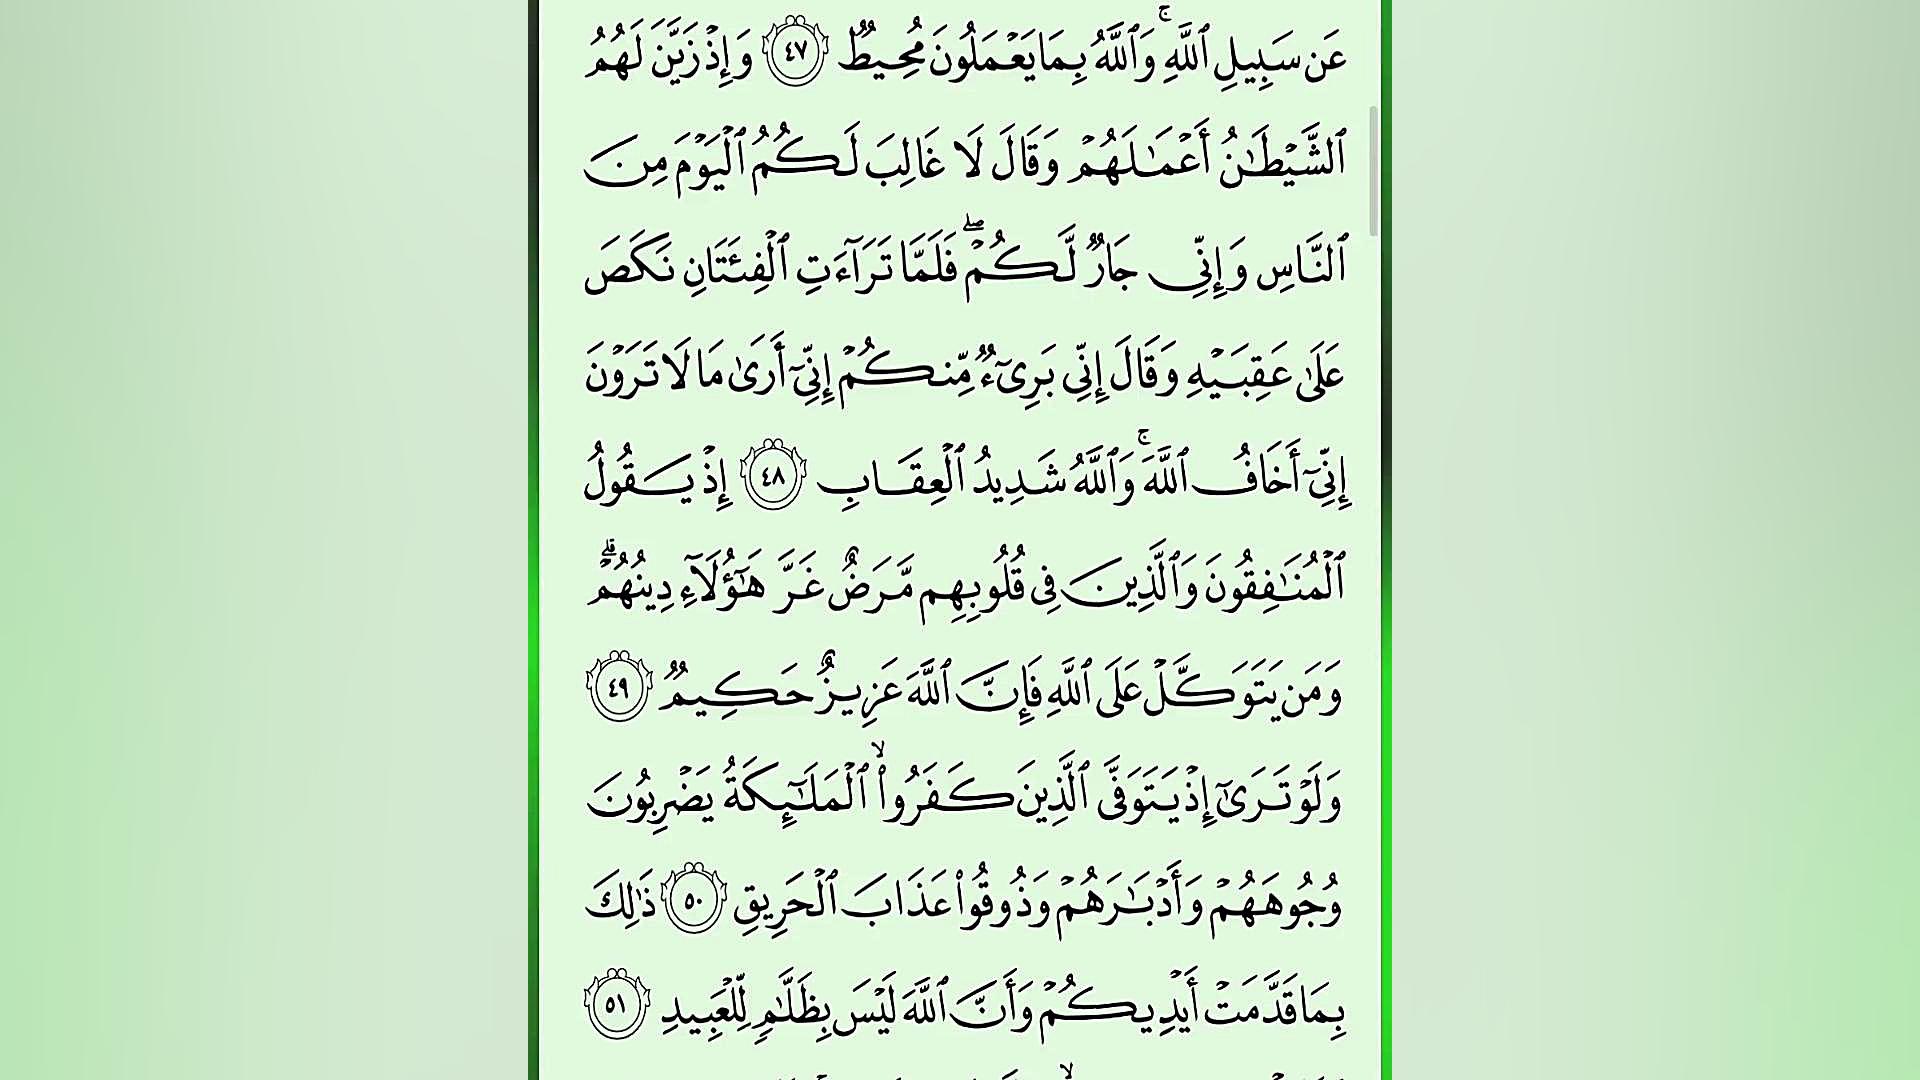 عَن سَبِيلِ ٱللَّهِۚ وَٱللَّهُ بِمَا يَعۡمَلُونَ مُحِيطٞ ٤٧ وَإِذۡ زَيَّنَ لَهُمُ
ٱلشَّيۡطَٰنُ أَعۡمَٰلَهُمۡ وَقَالَ لَا غَالِبَ لَكُمُ ٱلۡيَوۡمَ مِنَ
ٱلنَّاسِ وَإِنِّي جَارٞ لَّكُمۡۖ فَلَمَّا تَرَآءَتِ ٱلۡفِئَتَانِ نَكَصَ
عَلَىٰ عَقِبَيۡهِ وَقَالَ إِنِّي بَرِيٓءٞ مِّنكُمۡ إِنِّيٓ أَرَىٰ مَا لَا تَرَوۡنَ
إِنِّيٓ أَخَافُ ٱللَّهَۚ وَٱللَّهُ شَدِيدُ ٱلۡعِقَابِ ٤٨ إِذۡ يَقُولُ
ٱلۡمُنَٰفِقُونَ وَٱلَّذِينَ فِي قُلُوبِهِم مَّرَضٌ غَرَّ هَٰٓؤُلَآءِ دِينُهُمۡۗ
وَمَن يَتَوَكَّلۡ عَلَى ٱللَّهِ فَإِنَّ ٱللَّهَ عَزِيزٌ حَكِيمٞ ٤٩
وَلَوۡ تَرَىٰٓ إِذۡ يَتَوَفَّى ٱلَّذِينَ كَفَرُواْۙ ٱلۡمَلَٰٓئِكَةُ يَضۡرِبُونَ
وُجُوهَهُمۡ وَأَدۡبَٰرَهُمۡ وَذُوقُواْ عَذَابَ ٱلۡحَرِيقِ ٥٠ ذَٰلِكَ
بِمَا قَدَّمَتۡ أَيۡدِيكُمۡ وَأَنَّ ٱللَّهَ لَيۡسَ بِظَلَّٰمٖ لِّلۡعَبِيدِ ٥١